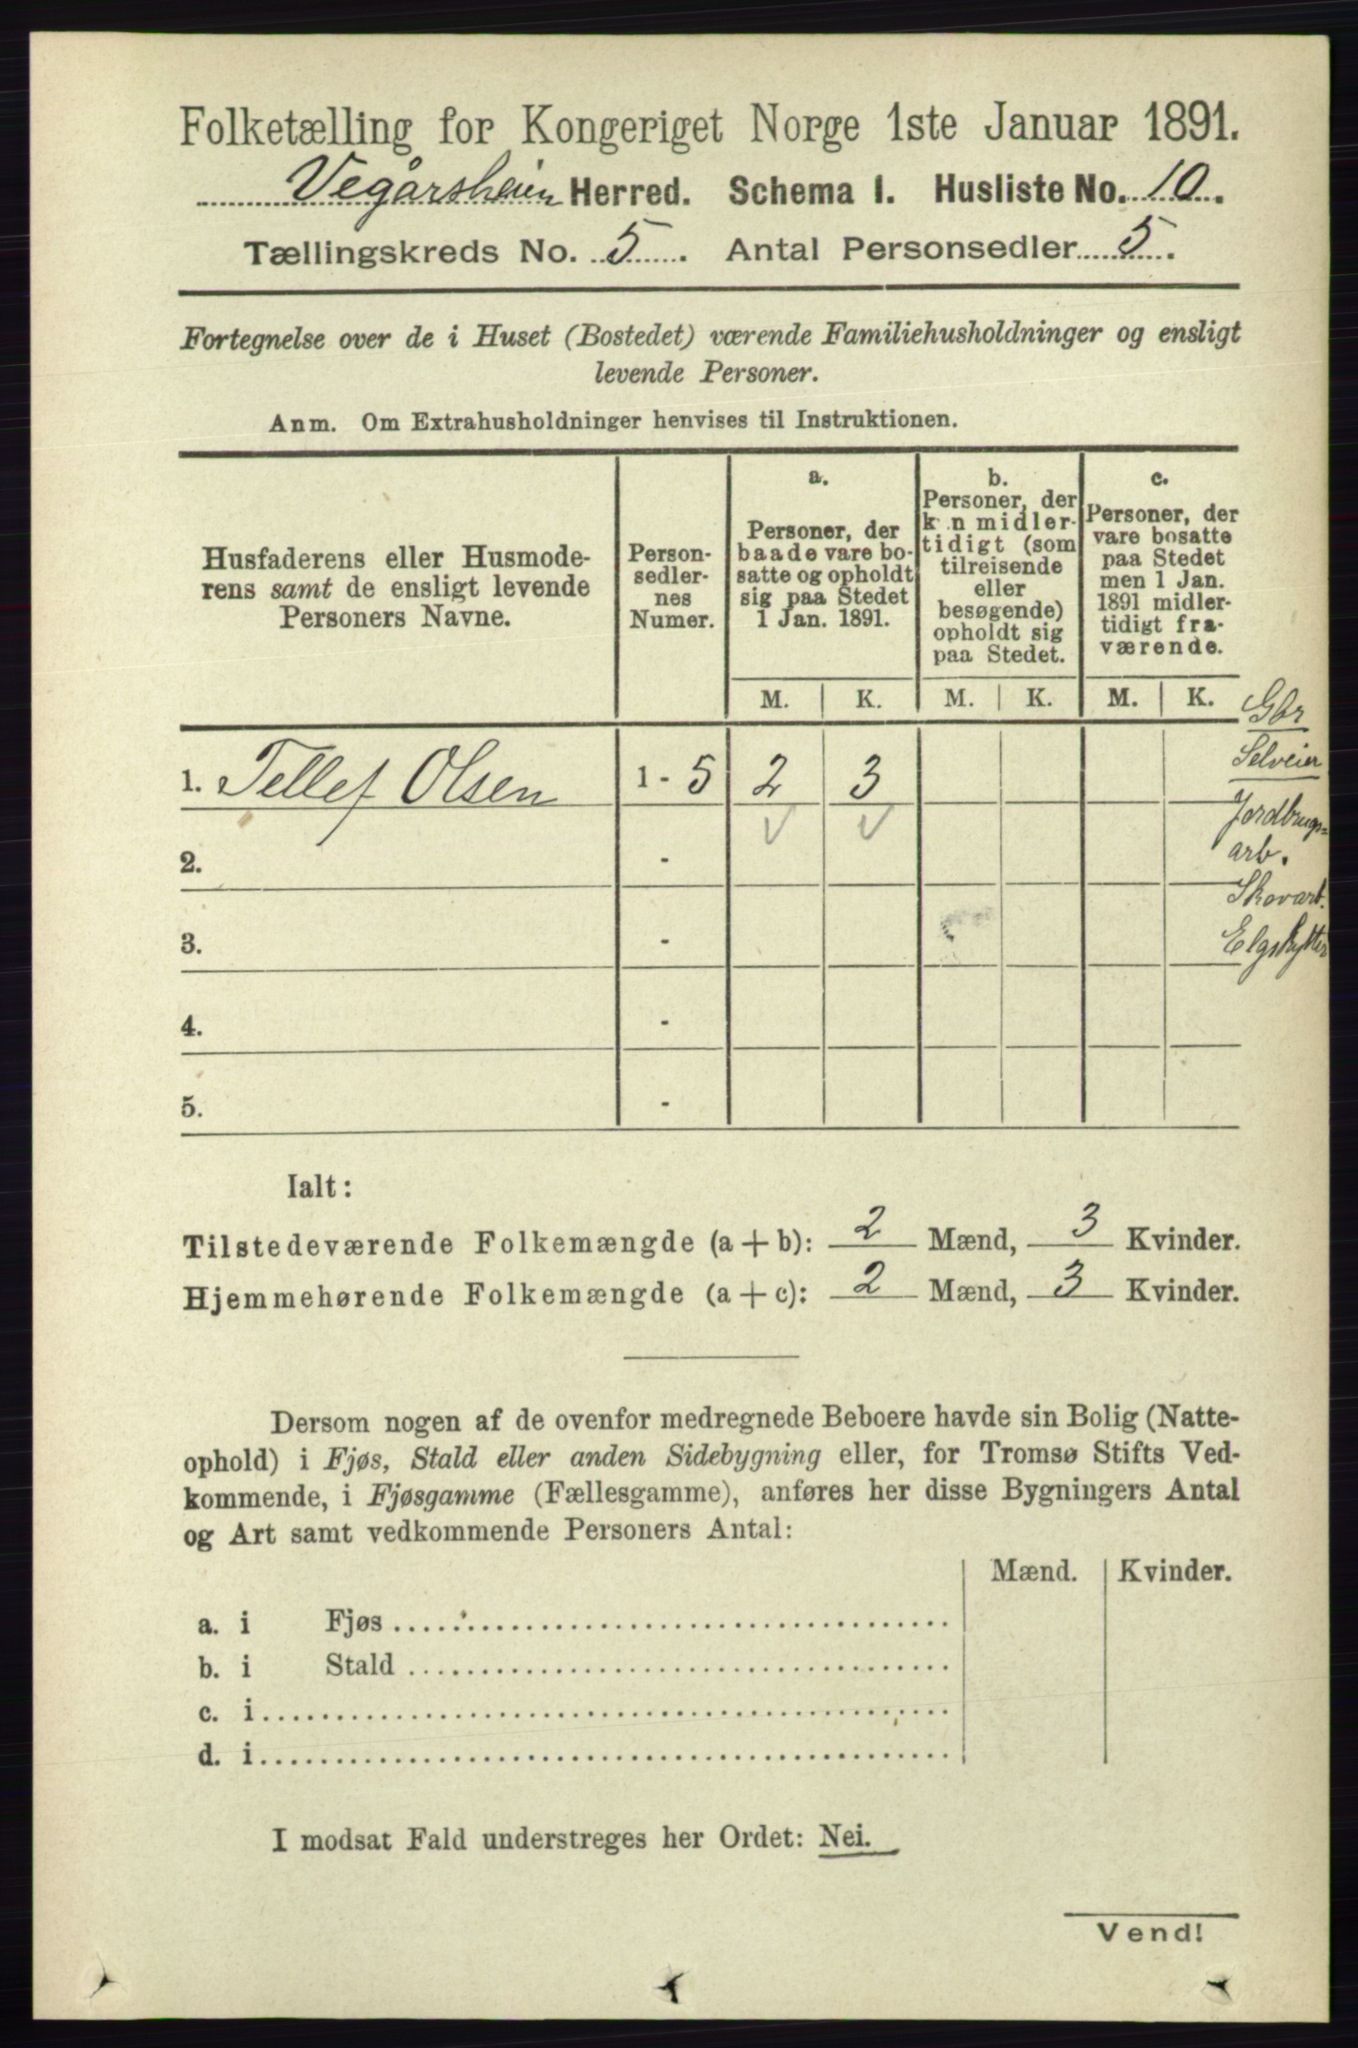 Folketælling for Kongeriget Norge 1ste Januar 1891.
Vegårsheien Herred. Schema I. Husliste No. 10.
Tællingskreds No. 5. Antal Personsedler 5.
Fortegnelse over de i Huset (Bostedet) værende Familiehusholdninger og ensligt
levende Personer.
Anm. Om Extrahusholdninger henvises til Instruktionen.
Husfaderens eller Husmode-
rens samt de ensligt levende
Personers Navne.
Person-
sedler-
nes
Numer.
a.
Personer, der
baade vare bo-
satte og opholdt
sig paa Stedet
1 Jan. 1891.
b.
Personer, der
k n midler-
tidigt (som
tilreisende
eller
besøgende)
opholdt sig
paa Stedet.
c.
Personer, der
vare bosatte
paa Stedet
men 1 Jan.
1891 midler-
tidigt fra-
værende.
M. K. M. K. M. K.
Gbr
Selveier
Jordbrugs=
arb.
Skovarb.
Elgskytter
1. Tellef Olsen 1 - 5 2 3
2. -
3. -
4. -
5. -
Ialt:
Tilstedeværende Folkemængde (a + b): 2 Mænd, 3 Kvinder.
Hjemmehørende Folkemængde (a + c): 2 Mænd, 3 Kvinder.
Dersom nogen af de ovenfor medregnede Beboere havde sin Bolig (Natte-
ophold) i Fjøs, Stald eller anden Sidebygning eller, for Tromsø Stifts Ved-
kommende, i Fjøsgamme (Fællesgamme), anføres her disse Bygningers Antal
og Art samt vedkommende Personers Antal:
Mænd. Kvinder.
a. i Fjøs
b. i Stald
c. i
d. i
I modsat Fald understreges her Ordet: Nei.
Vend!